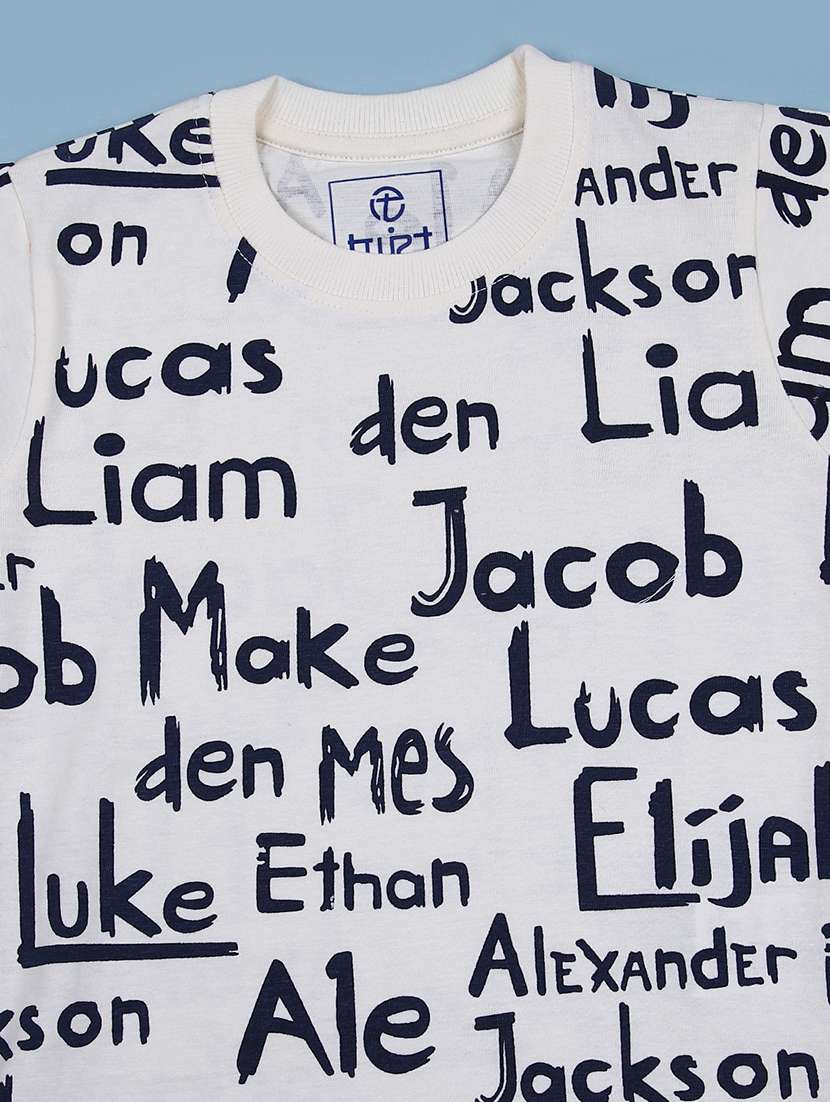 uke
on
ucas
Liam
den
Lia
Ander
Jackson
den
Jacob
ob
Make
den Mes
Lucas
Luke
Ethan
Elíja
Ale
Alexander
kson
Jackson